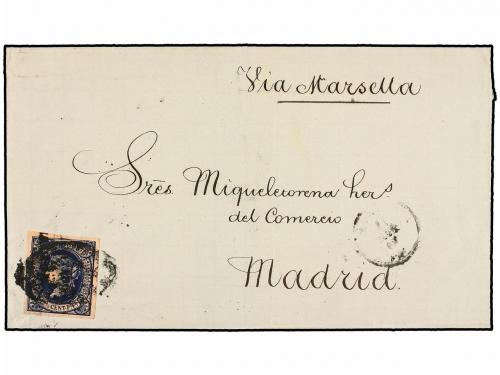 Via Marsella
Srēs Miqueletorena hers.
del Comercio
Madrid.